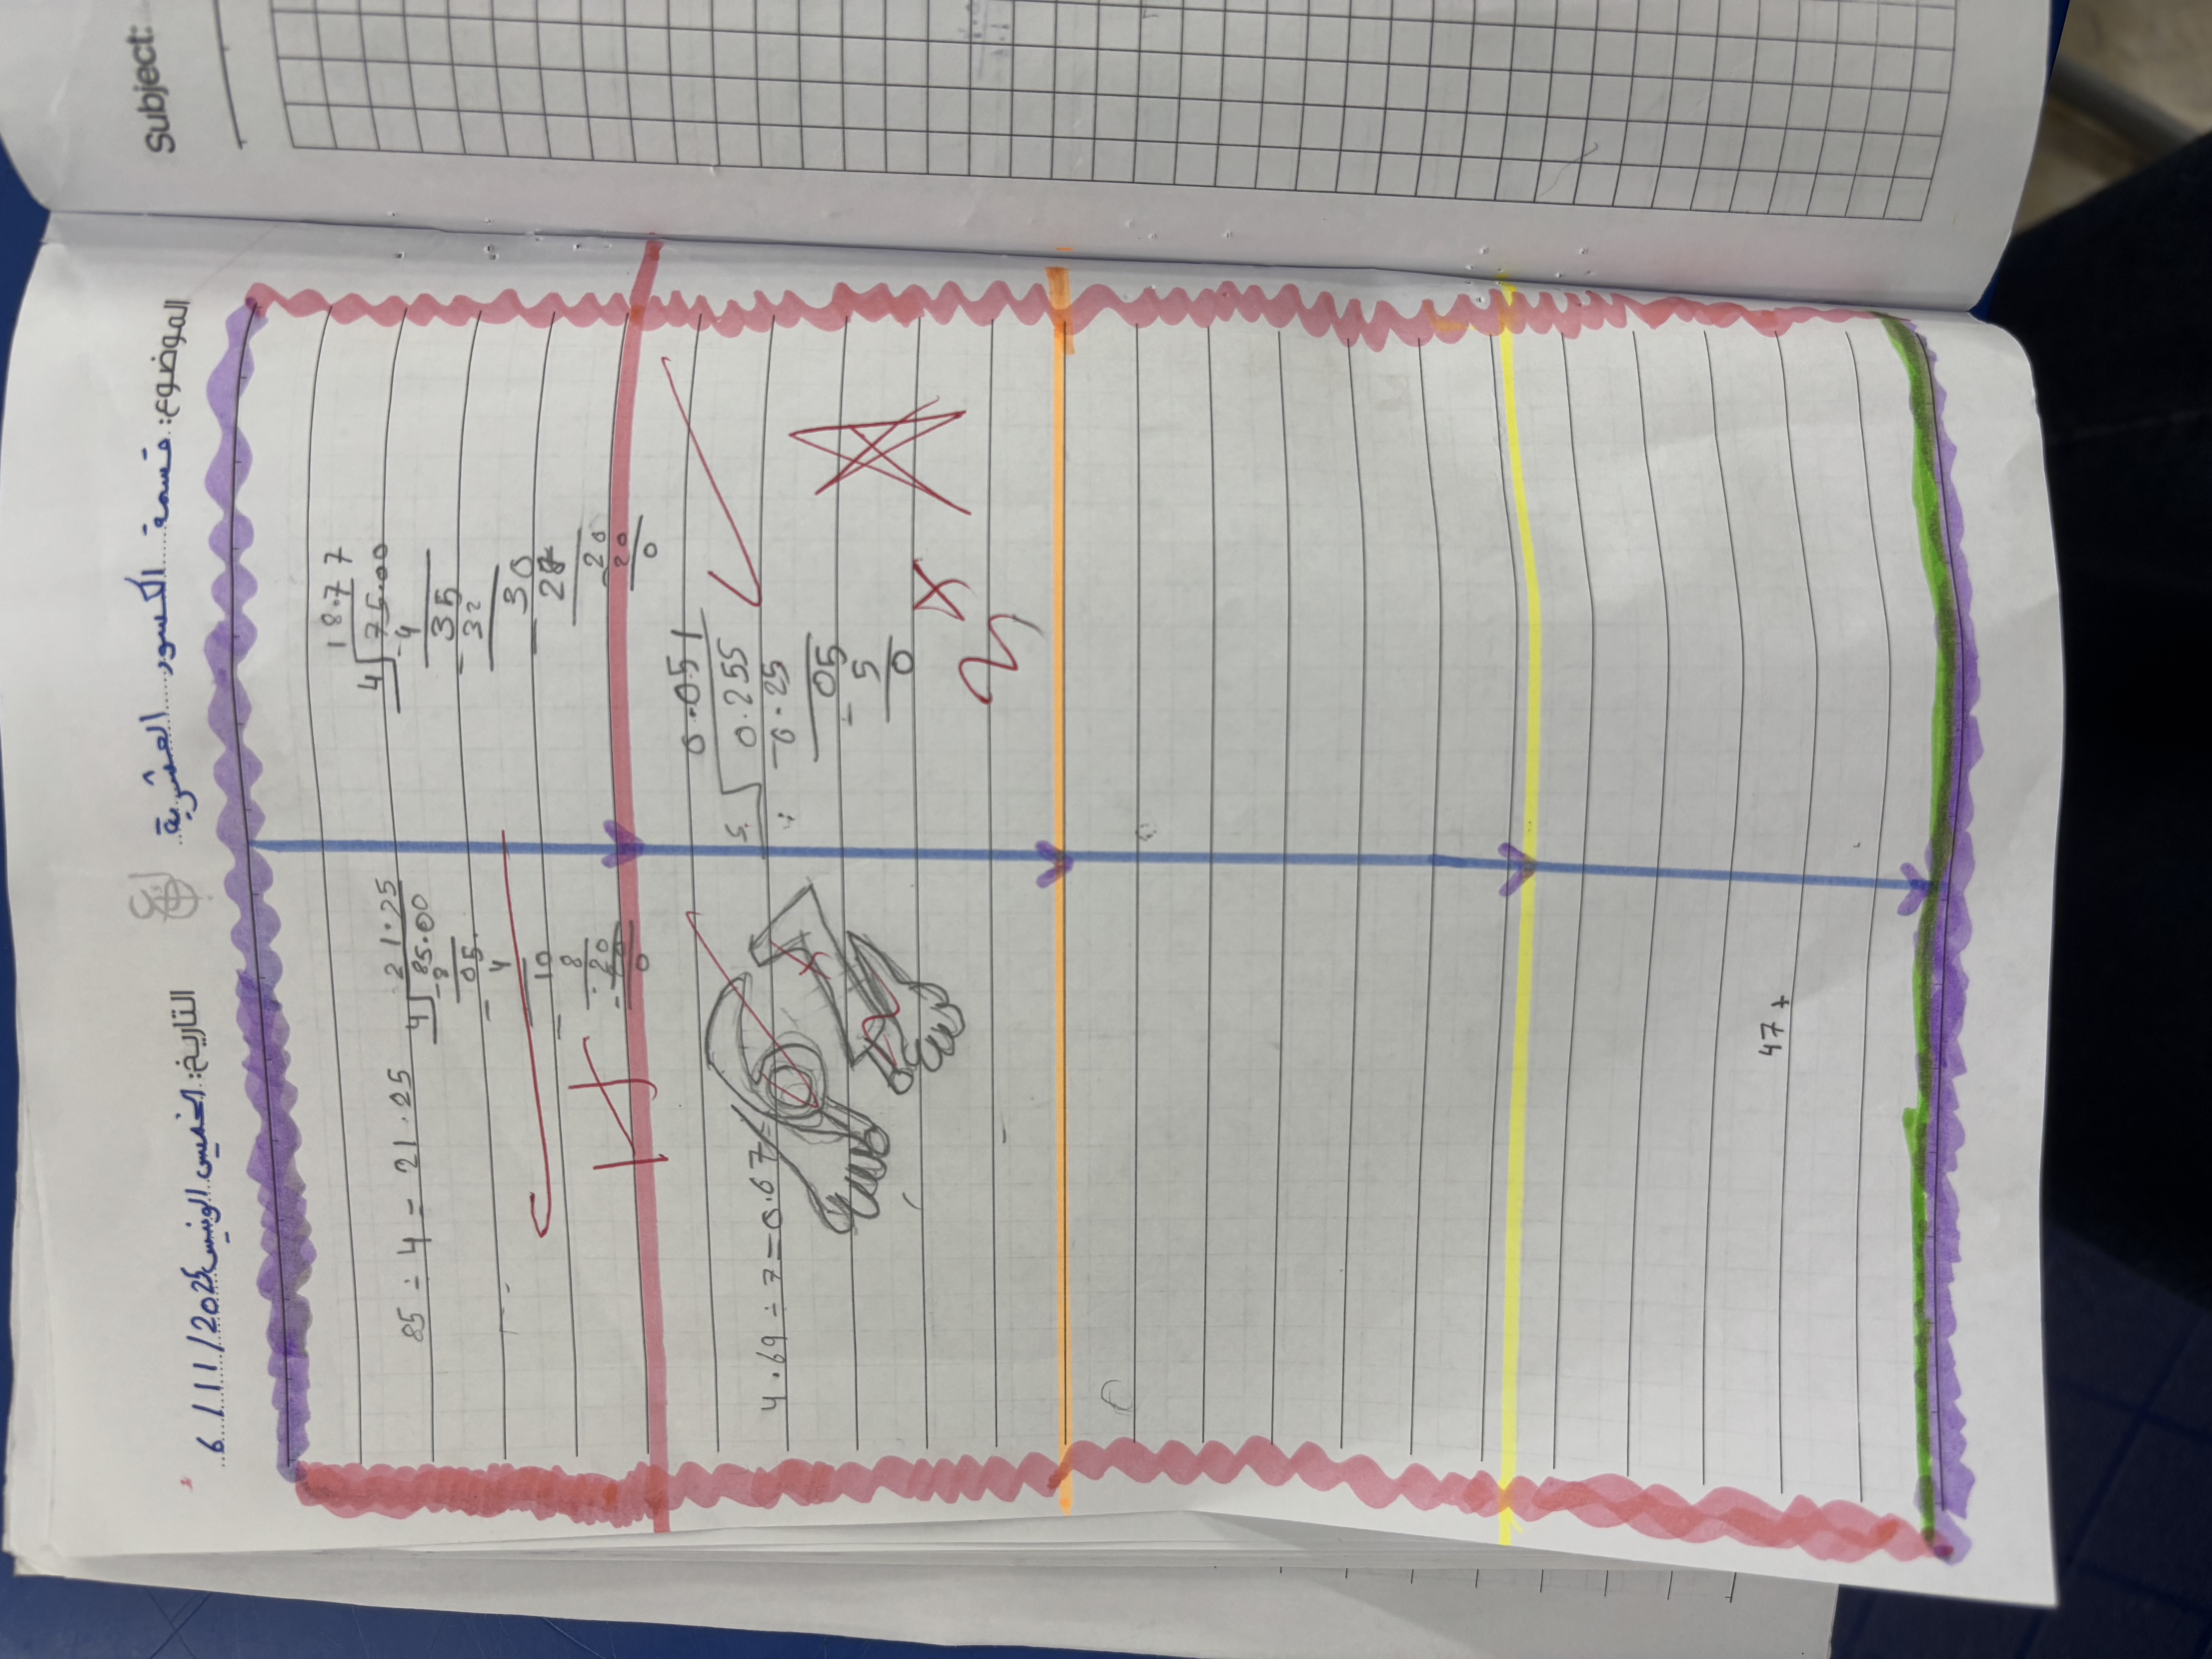 Subject:
الموضوع: قسمة الكسور العشرية
التاريخ: الخميس الونيس 6/11/2025
85 ÷ 4 = 21.25
21.25
4 85.00
- 8
05
- 4
10
- 8
- 20
- 20
0
18.77
4 75.00
- 4
35
- 32
- 30
28
- 20
20
0
4.69 ÷ 7 = 0.67
0.051
5 0.255
- 0.25
05
- 5
0
47 +